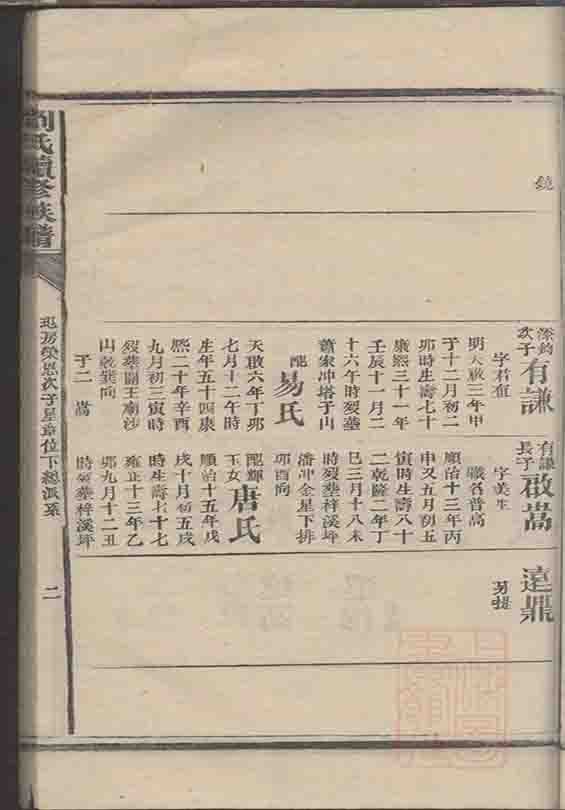 劉氏續修族譜
鏡
深鈞
次子
有謙
字君值
明天啟三年甲
子十二月初二
卯時生壽七十
康熙三十一年
壬辰十一月二
十六午時歿塟
蕭家冲塔子山
配
易氏
天啟六年丁卯
七月十二午時
生年五十四康
熙二十年辛酉
九月初三寅時
歿塟關王廟沙
山乾巽向
子二 嵩
有謙
長子
啟嵩
字美生
職名普高
順治十三年丙
申又五月初五
寅時生壽八十
二乾隆二年丁
巳三月十八未
時歿塟梓溪坪
潘冲金星下排
卯酉向
配輝
玉女
唐氏
順治十五年戊
戌十月初五戌
時生壽七十七
雍正十三年乙
卯九月十二丑
時歿塟梓溪坪
遠鼎
另提
房榮恩次子星章位下總派系
二